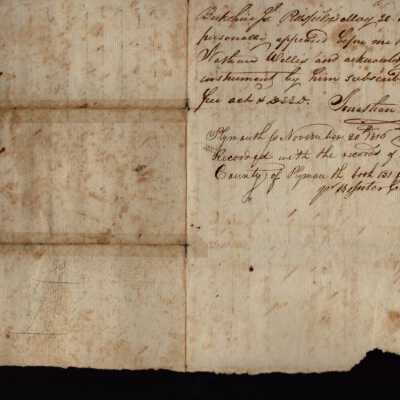 Berkshire Ss. Pittsfield May 20
personally appeared before me
Nathan Willis and acknowl
instrument by him subscrib
free act & Deed. Jonathan
Plymouth Ss November 20th 1816
Recorded with the records of
County of Plymouth book 131
pr Rossiter